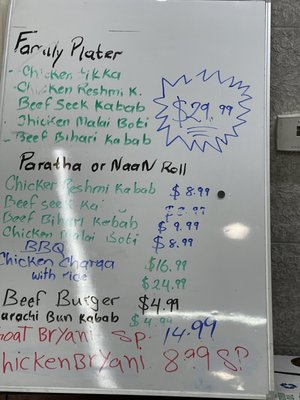 Family Plater
- Chicken Tikka
- Chicken Reshmi K.
Beef Seek Kabab
- Chicken Malai Boti
- Beef Bihari kabab
$29.99
Paratha or NaaN Roll
Chicken Reshmi Kabab $8.99
Beef seek Ka
Beef Bihari Kebab $9.99
Chicken Malai Boti $8.99
BBQ
Chicken Charga $16.99
with rice $24.99
Beef Burger $4.99
arachi Bun Kabab $4.99
Goat Bryani SP. 14.99
hicken Bryani 8.99 SP